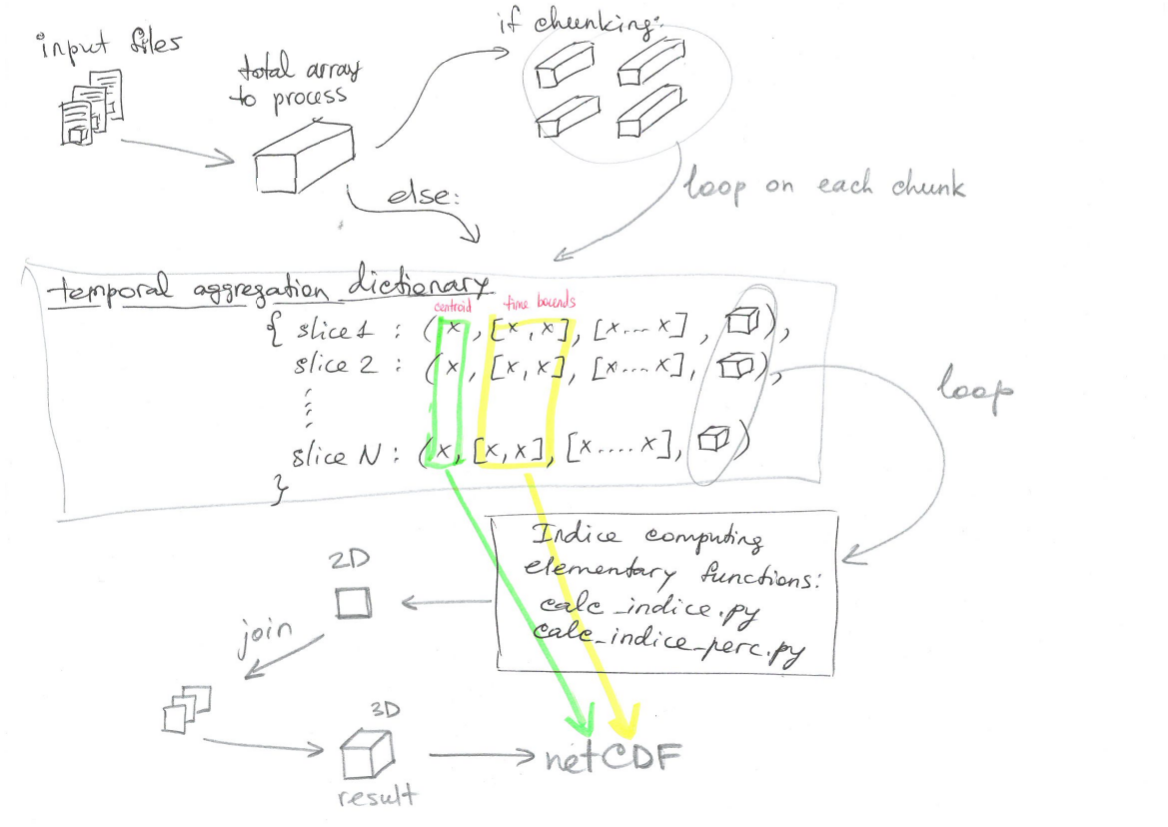 input files
total array
to process
if chunking:
else:
loop on each chunk
temporal aggregation dictionary
centroid time bounds
{ slice 1 : (x, [x, x], [x...x], ),
slice 2 : (x, [x, x], [x...x], ),
slice N : (x, [x, x], [x....x], )
}
loop
Indice computing
elementary functions:
calc_indice.py
calc_indice_perc.py
2D
join
3D
result
netCDF